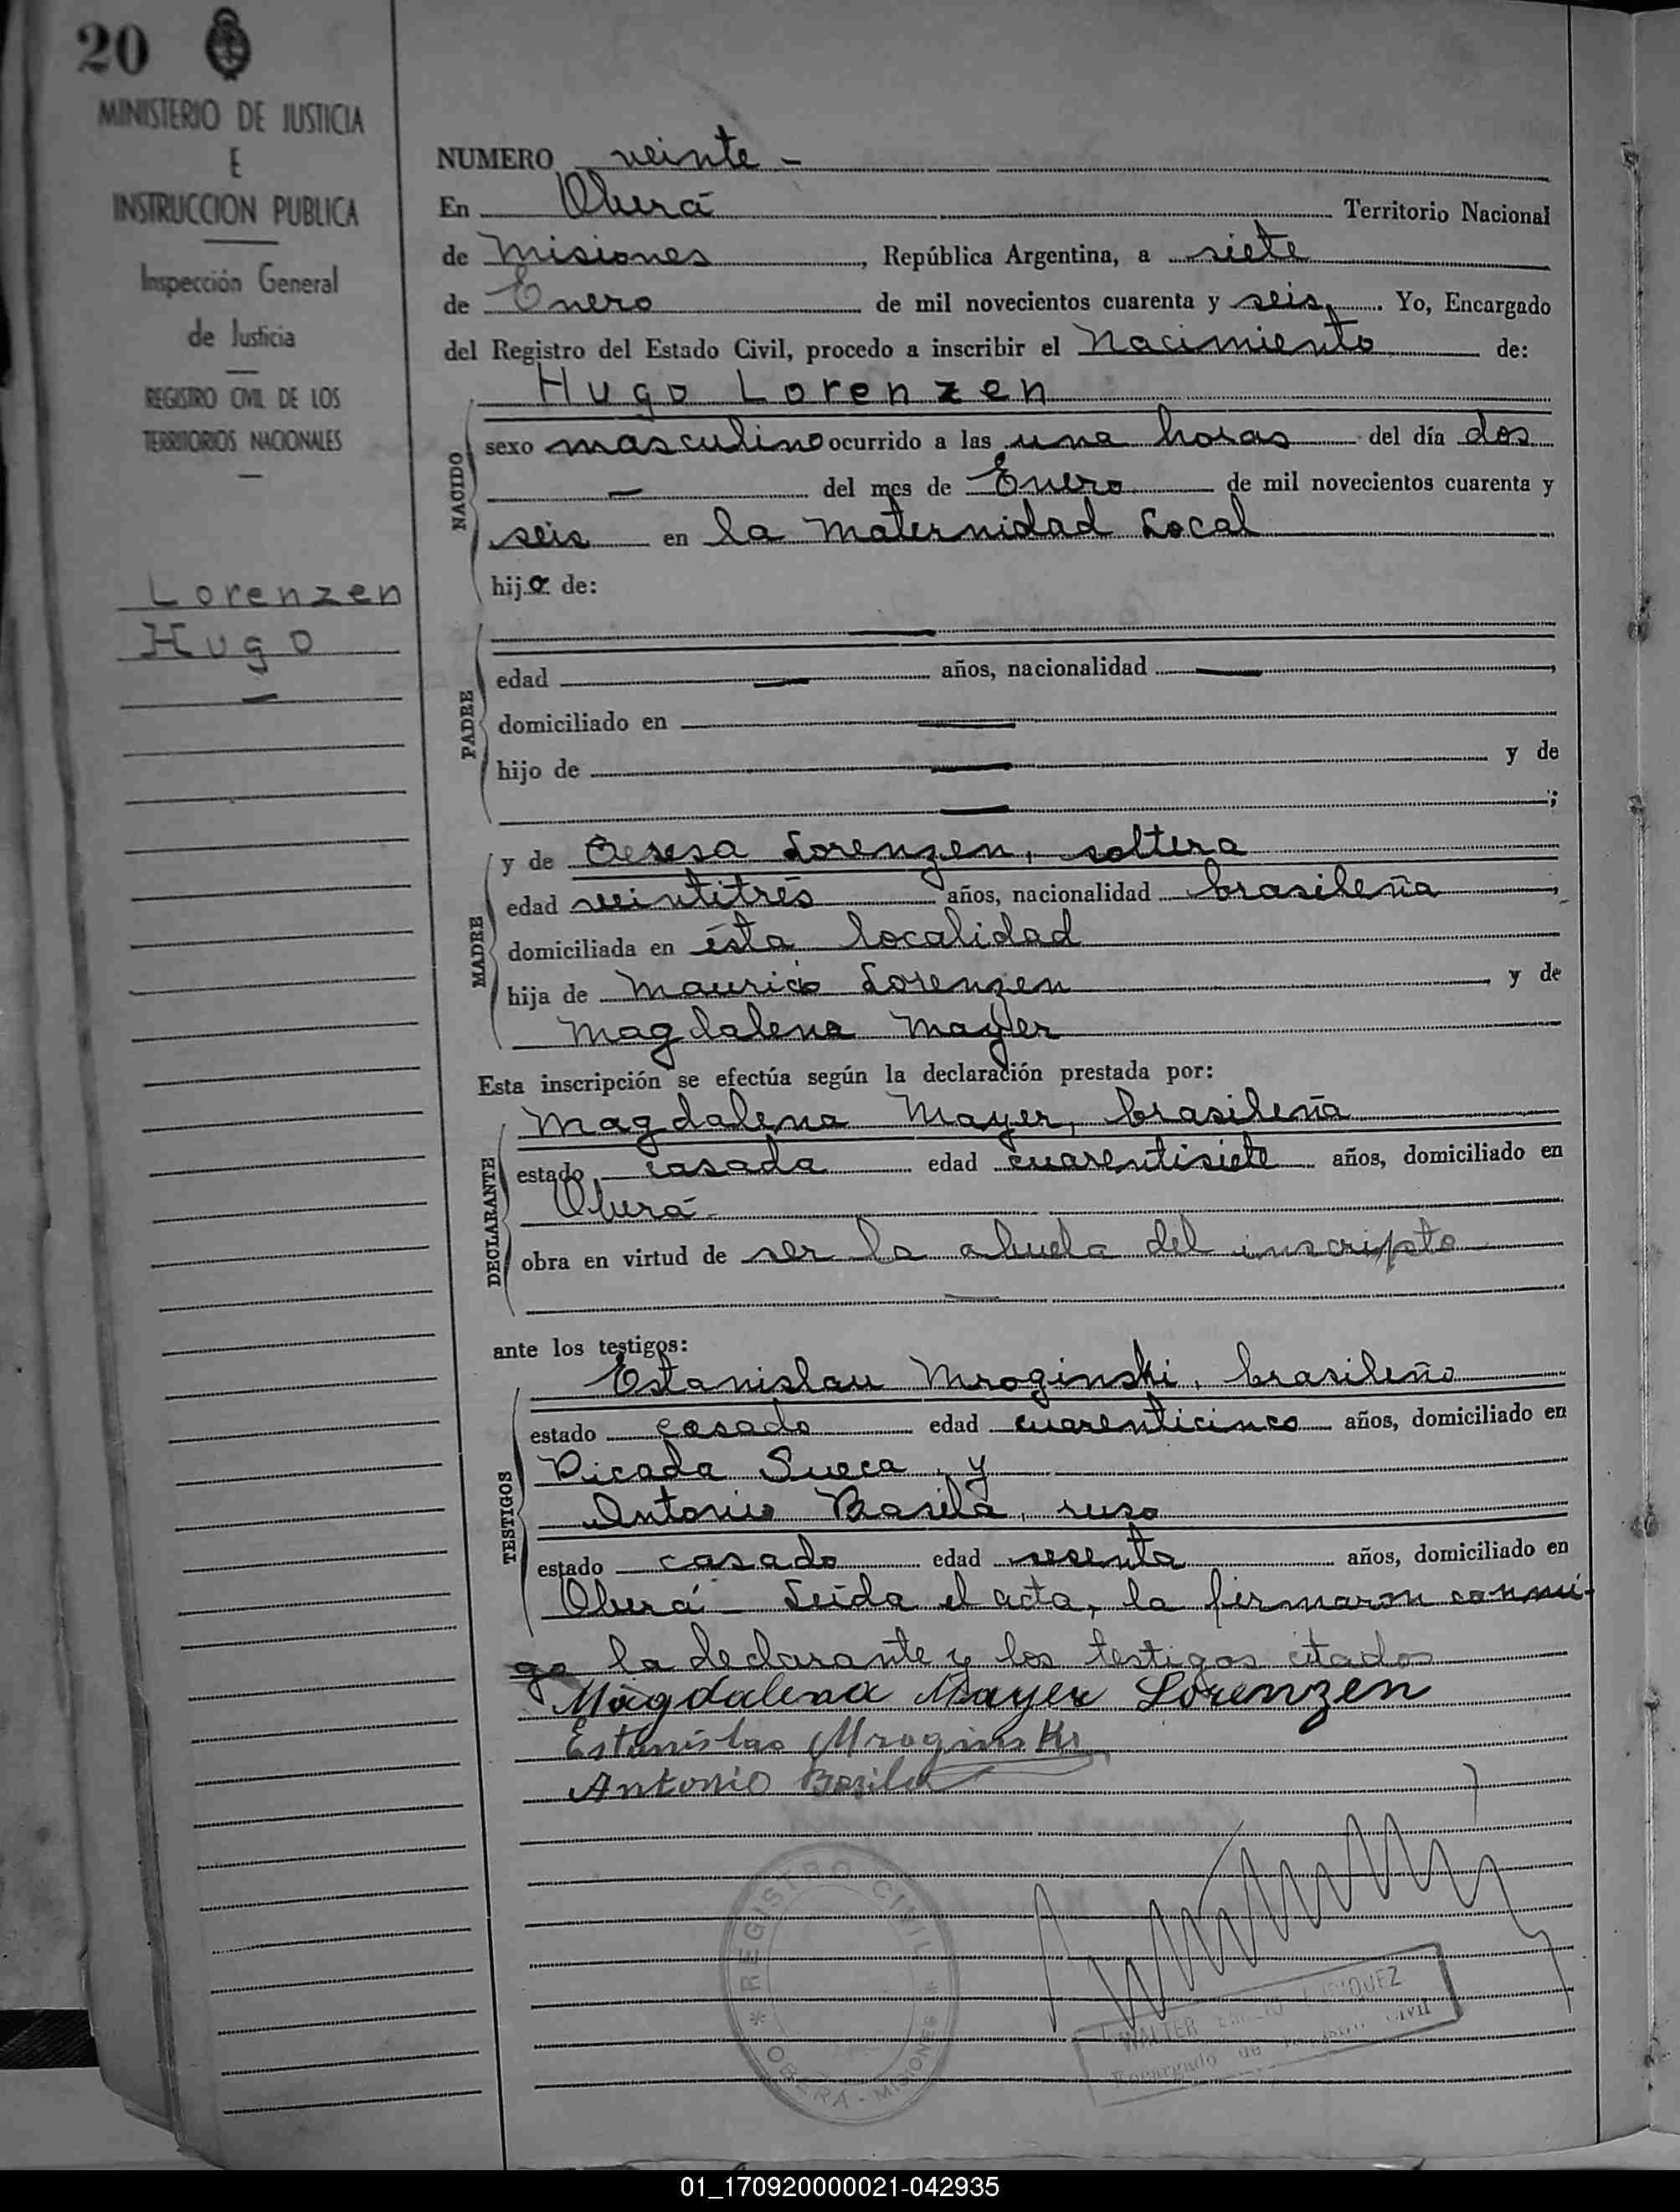 20
MINISTERIO DE JUSTICIA
E
INSTRUCCION PUBLICA
Inspección General
de Justicia
REGISTRO CIVIL DE LOS
TERRITORIOS NACIONALES
Lorenzen
Hugo
NUMERO veinte -
En Oberá Territorio Nacional
de Misiones, República Argentina, a siete
de Enero de mil novecientos cuarenta y seis. Yo, Encargado
del Registro del Estado Civil, procedo a inscribir el Nacimiento de:
Hugo Lorenzen
NACIDO
sexo masculino ocurrido a las una horas del día dos
— del mes de Enero de mil novecientos cuarenta y
seis en la Maternidad Local
hijo de:
PADRE
edad — años, nacionalidad —,
domiciliado en —
hijo de — y de
— ;
MADRE
y de Teresa Lorenzen, soltera
edad veintitrés años, nacionalidad brasileña,
domiciliada en ésta localidad
hija de Mauricio Lorenzen y de
Magdalena Mayer
Esta inscripción se efectúa según la declaración prestada por:
DECLARANTE
Magdalena Mayer, brasileña
estado casada edad cuarentisiete años, domiciliado en
Oberá-
obra en virtud de ser la abuela del inscripto
ante los testigos:
TESTIGOS
Estanislau Mroginski, brasileño
estado casado edad cuarenticinco años, domiciliado en
Picada Sueca, y
Antonio Basila, ruso
estado casado edad sesenta años, domiciliado en
Oberá - Leída el acta, la firmaron conmi-
go la declarante y los testigos citados
Magdalena Mayer Lorenzen
Estanislao Mroginski
Antonio Bazila
* REGISTRO CIVIL *
OBERÁ - MISIONES
WALTER
Encargado de Registro Civil
01_170920000021-042935